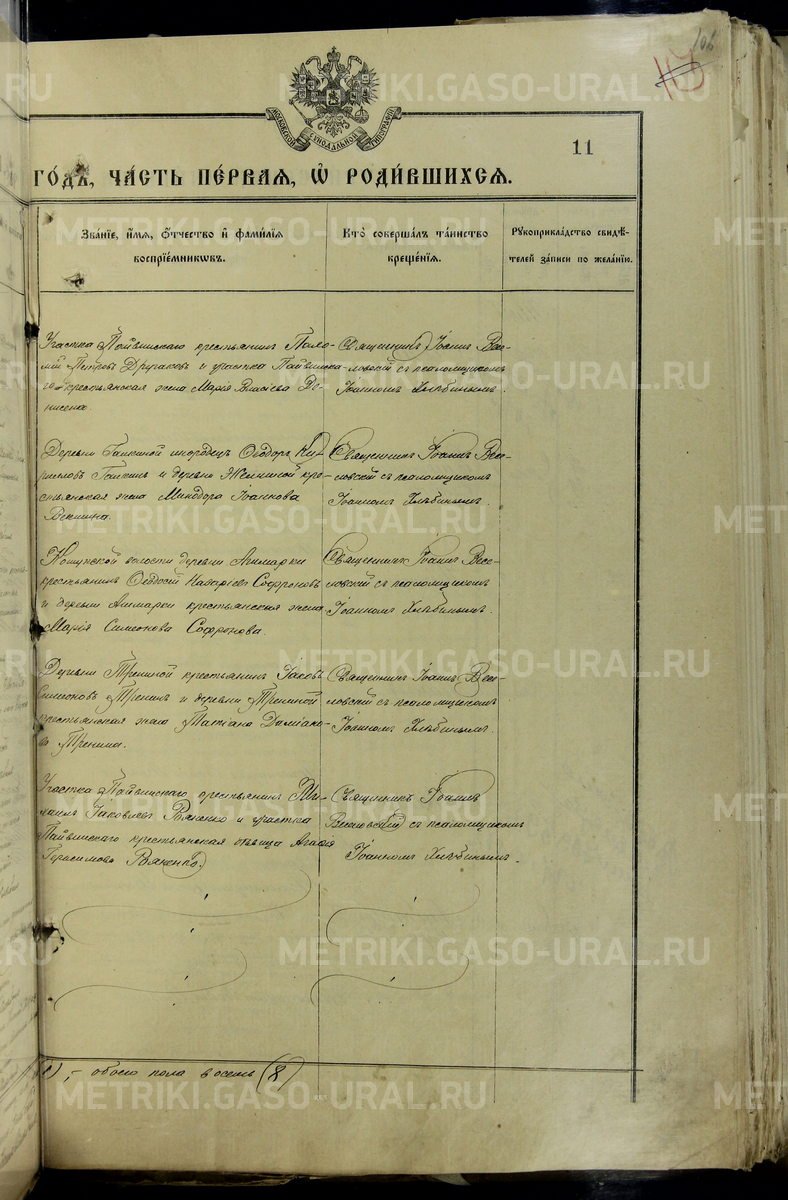 106
11
МОСКОВСКОЙ СѴНОДАЛЬНОЙ ТИПОГРАФІИ
ГО́ДЪ, ЧА́СТЬ ПЕ́РВАЯ, Ѡ҆ РОДИ́ВШИХСЯ.
Зва́нїе, и҆́мя, ѻ҆́тчество и҆ фами́лїя
воспрїе́мникѡвъ.
Кто̀ соверша́лъ та́инство
креще́нїѧ.
Рꙋкоприкла́дство свидѣ́-
телей за́писи по жела́нїю.
Участка Пайвинскаго крестьянинъ
Петровъ Другаковъ и участка Пайвинска-
го крестьянская жена Марія Власіева Де-
нисена.
Священникъ Іоаннъ Весе-
ловскій съ псаломщикомъ
Іоанномъ Хлѣбинымъ.
Деревни Галкиной инородецъ Ѳеодоръ
Галкинъ и деревни крe-
стьянская жена Минодора Іоаннова
Векшина.
Священникъ Іоаннъ Весе-
ловскій съ псаломщикомъ
Іоанномъ Хлѣбинымъ.
волости деревни
крестьянинъ Ѳеодосій Назаріевъ Софроновъ
и деревни крестьянская жена
Марія Симеонова Софронова.
Священникъ Іоаннъ Весе-
ловскій съ псаломщикомъ
Іоанномъ Хлѣбинымъ.
Деревни Трениной крестьянинъ Іаковъ
Симеоновъ Тренинъ и деревни Трениной
крестьянская жена Татіана Даміано-
ва Тренина.
Священникъ Іоаннъ Весе-
ловскій съ псаломщикомъ
Іоанномъ Хлѣбинымъ.
Участка Пайвинскаго крестьянинъ Ми-
хаилъ Іаковлевъ Ряженко и участка
Пайвинскаго крестьянская дѣвица Агафія
Герасимова Ряженко.
Священникъ Іоаннъ
Веселовскій съ псаломщикомъ
Іоанномъ Хлѣбинымъ.
обоего пола восемь (8)
METRIKI.GASO-URAL.RU